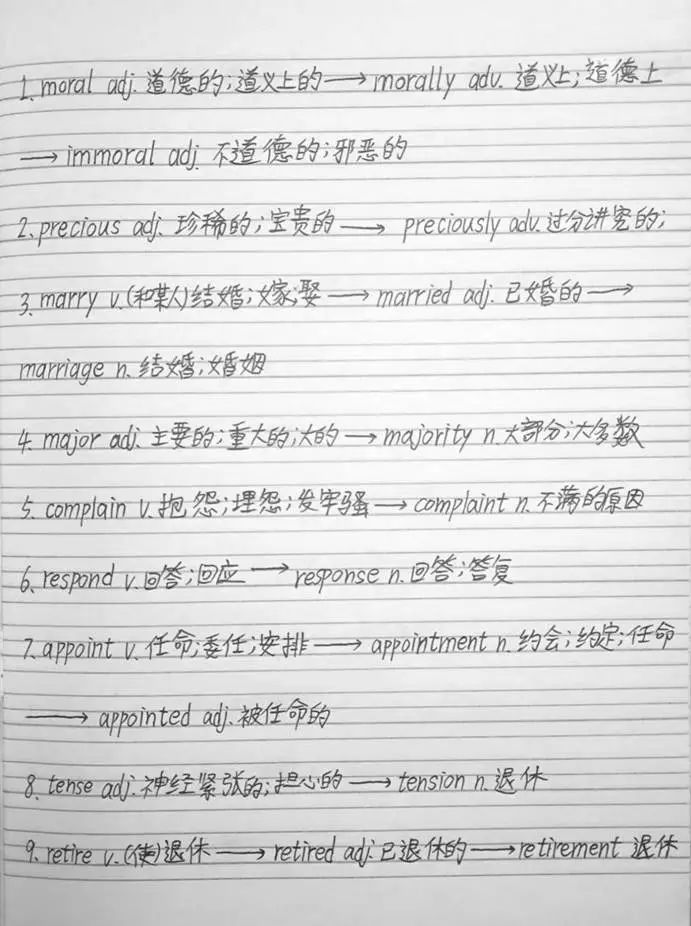 1. moral adj. 道德的;道义上的→morally adv. 道义上;道德上
→immoral adj. 不道德的;邪恶的
2. precious adj. 珍稀的;宝贵的→ preciously adv. 过分讲究的;
3. marry v.(和某人)结婚;嫁;娶→married adj. 已婚的→
marriage n. 结婚;婚姻
4. major adj. 主要的;重大的;大的→majority n. 大部分;大多数
5. complain v. 抱怨;埋怨;发牢骚→complaint n. 不满的原因
6. respond v. 回答;回应→response n. 回答;答复
7. appoint v. 任命;委任;安排→appointment n. 约会;约定;任命
→appointed adj. 被任命的
8. tense adj. 神经紧张的;担心的→tension n. 退休
9. retire v.(使)退休→retired adj. 已退休的→retirement 退休